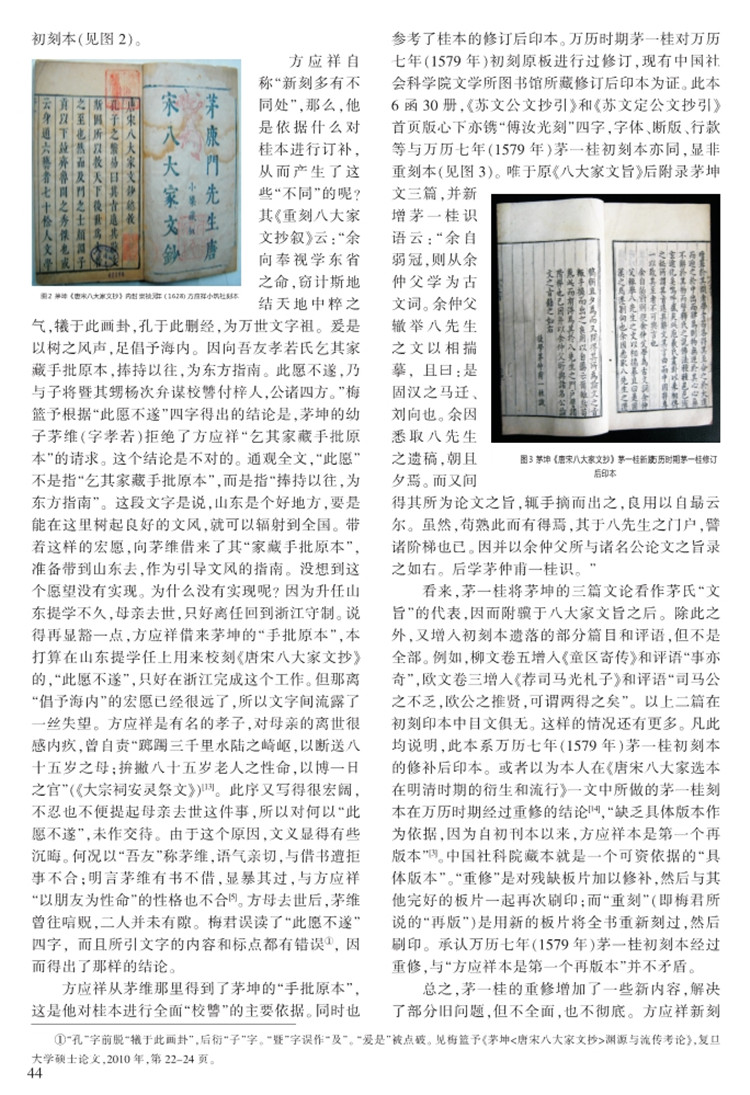 初刻本(见图 2)。
方应祥自
称“新刻多有不
同处”,那么,他
是依据什么对
桂本进行订补,
从而产生了这
些“不同”的呢?
其《重刻八大家
文抄叙》云:“余
向奉视学东省
之命,窃计斯地
结天地中粹之
茅鹿門先生唐
宋八大家文鈔
小築藏板
图2 茅坤《唐宋八大家文抄》内封 崇祯元年(1628)方应祥小筑社刻本
气,犠于此画卦,孔于此删经,为万世文字祖。爰是
以树之风声,足倡予海内。因向吾友孝若氏乞其家
藏手批原本,捧持以往,为东方指南。此愿不遂,乃
与子将暨其甥杨次弁谋校讐付梓人,公诸四方。”梅
篮予根据“此愿不遂”四字得出的结论是,茅坤的幼
子茅维(字孝若)拒绝了方应祥“乞其家藏手批原
本”的请求。这个结论是不对的。通观全文,“此愿”
不是指“乞其家藏手批原本”,而是指“捧持以往,为
东方指南”。这段文字是说,山东是个好地方,要是
能在这里树起良好的文风,就可以辐射到全国。带
着这样的宏愿,向茅维借来了其“家藏手批原本”,
准备带到山东去,作为引导文风的指南。没想到这
个愿望没有实现。为什么没有实现呢?因为升任山
东提学不久,母亲去世,只好离任回到浙江守制。说
得再显豁一点,方应祥借来茅坤的“手批原本”,本
打算在山东提学任上用来校刻《唐宋八大家文抄》
的,“此愿不遂”,只好在浙江完成这个工作。但那离
“倡予海内”的宏愿已经很远了,所以文字间流露了
一丝失望。方应祥是有名的孝子,对母亲的离世很
感内疚,曾自责“踯躅三千里水陆之崎岖,以断送八
十五岁之母;拚撇八十五岁老人之性命,以博一日
之官”(《大宗祠安灵祭文》)[13]。此序又写得很宏阔,
不忍也不便提起母亲去世这件事,所以对何以“此
愿不遂”,未作交待。由于这个原因,文义显得有些
沉晦。何况以“吾友”称茅维,语气亲切,与借书遭拒
事不合;明言茅维有书不借,显暴其过,与方应祥
“以朋友为性命”的性格也不合[5]。方母去世后,茅维
曾往唁贶,二人并未有隙。梅君误读了“此愿不遂”
四字,而且所引文字的内容和标点都有错误①,因
而得出了那样的结论。
方应祥从茅维那里得到了茅坤的“手批原本”,
这是他对桂本进行全面“校讐”的主要依据。同时也
参考了桂本的修订后印本。万历时期茅一桂对万历
七年(1579 年)初刻原板进行过修订,现有中国社
会科学院文学所图书馆所藏修订后印本为证。此本
6 函 30 册,《苏文公文抄引》和《苏文定公文抄引》
首页版心下亦镌“傅汝光刻”四字,字体、断版、行款
等与万历七年(1579 年)茅一桂初刻本亦同,显非
重刻本(见图 3)。唯于原《八大家文旨》后附录茅坤
文三篇,并新
增茅一桂识
语云:“余自
弱冠,则从余
仲父学为古
文词。余仲父
辙举八先生
之文以相揣
摹,且曰:是
固汉之马迁、
刘向也。余因
悉取八先生
之遗稿,朝且
夕焉。而又间
图3 茅坤《唐宋八大家文抄》茅一桂新识 万历时期茅一桂修订
后印本
得其所为论文之旨,辄手摘而出之,良用以自勗云
尔。虽然,苟熟此而有得焉,其于八先生之门户,譬
诸阶梯也已。因并以余仲父所与诸名公论文之旨录
之如右。后学茅仲甫一桂识。”
看来,茅一桂将茅坤的三篇文论看作茅氏“文
旨”的代表,因而附骥于八大家文旨之后。除此之
外,又增入初刻本遗落的部分篇目和评语,但不是
全部。例如,柳文卷五增入《童区寄传》和评语“事亦
奇”,欧文卷三增入《荐司马光札子》和评语“司马公
之不乏,欧公之推贤,可谓两得之矣”。以上二篇在
初刻印本中目文俱无。这样的情况还有更多。凡此
均说明,此本系万历七年(1579 年)茅一桂初刻本
的修补后印本。或者以为本人在《唐宋八大家选本
在明清时期的衍生和流行》一文中所做的茅一桂刻
本在万历时期经过重修的结论[14],“缺乏具体版本作
为依据,因为自初刊本以来,方应祥本是第一个再
版本”[3]。中国社科院藏本就是一个可资依据的“具
体版本”。“重修”是对残缺板片加以修补,然后与其
他完好的板片一起再次刷印;而“重刻”(即梅君所
说的“再版”)是用新的板片将全书重新刻过,然后
刷印。承认万历七年(1579 年)茅一桂初刻本经过
重修,与“方应祥本是第一个再版本”并不矛盾。
总之,茅一桂的重修增加了一些新内容,解决
了部分旧问题,但不全面,也不彻底。方应祥新刻
①“孔”字前脱“犠于此画卦”,后衍“子”字。“暨”字误作“及”。“爰是”被点破。见梅篮予《茅坤<唐宋八大家文抄>渊源与流传考论》,复旦
大学硕士论文,2010 年,第 22-24 页。
44